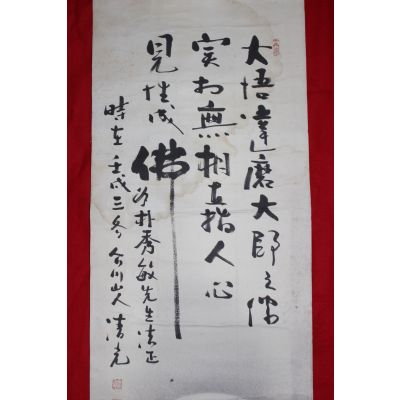 大悟達磨大師之偈
実相無相直指人心
見性成佛
为朴秀敏先生法正
時在壬戌三冬 山人清光